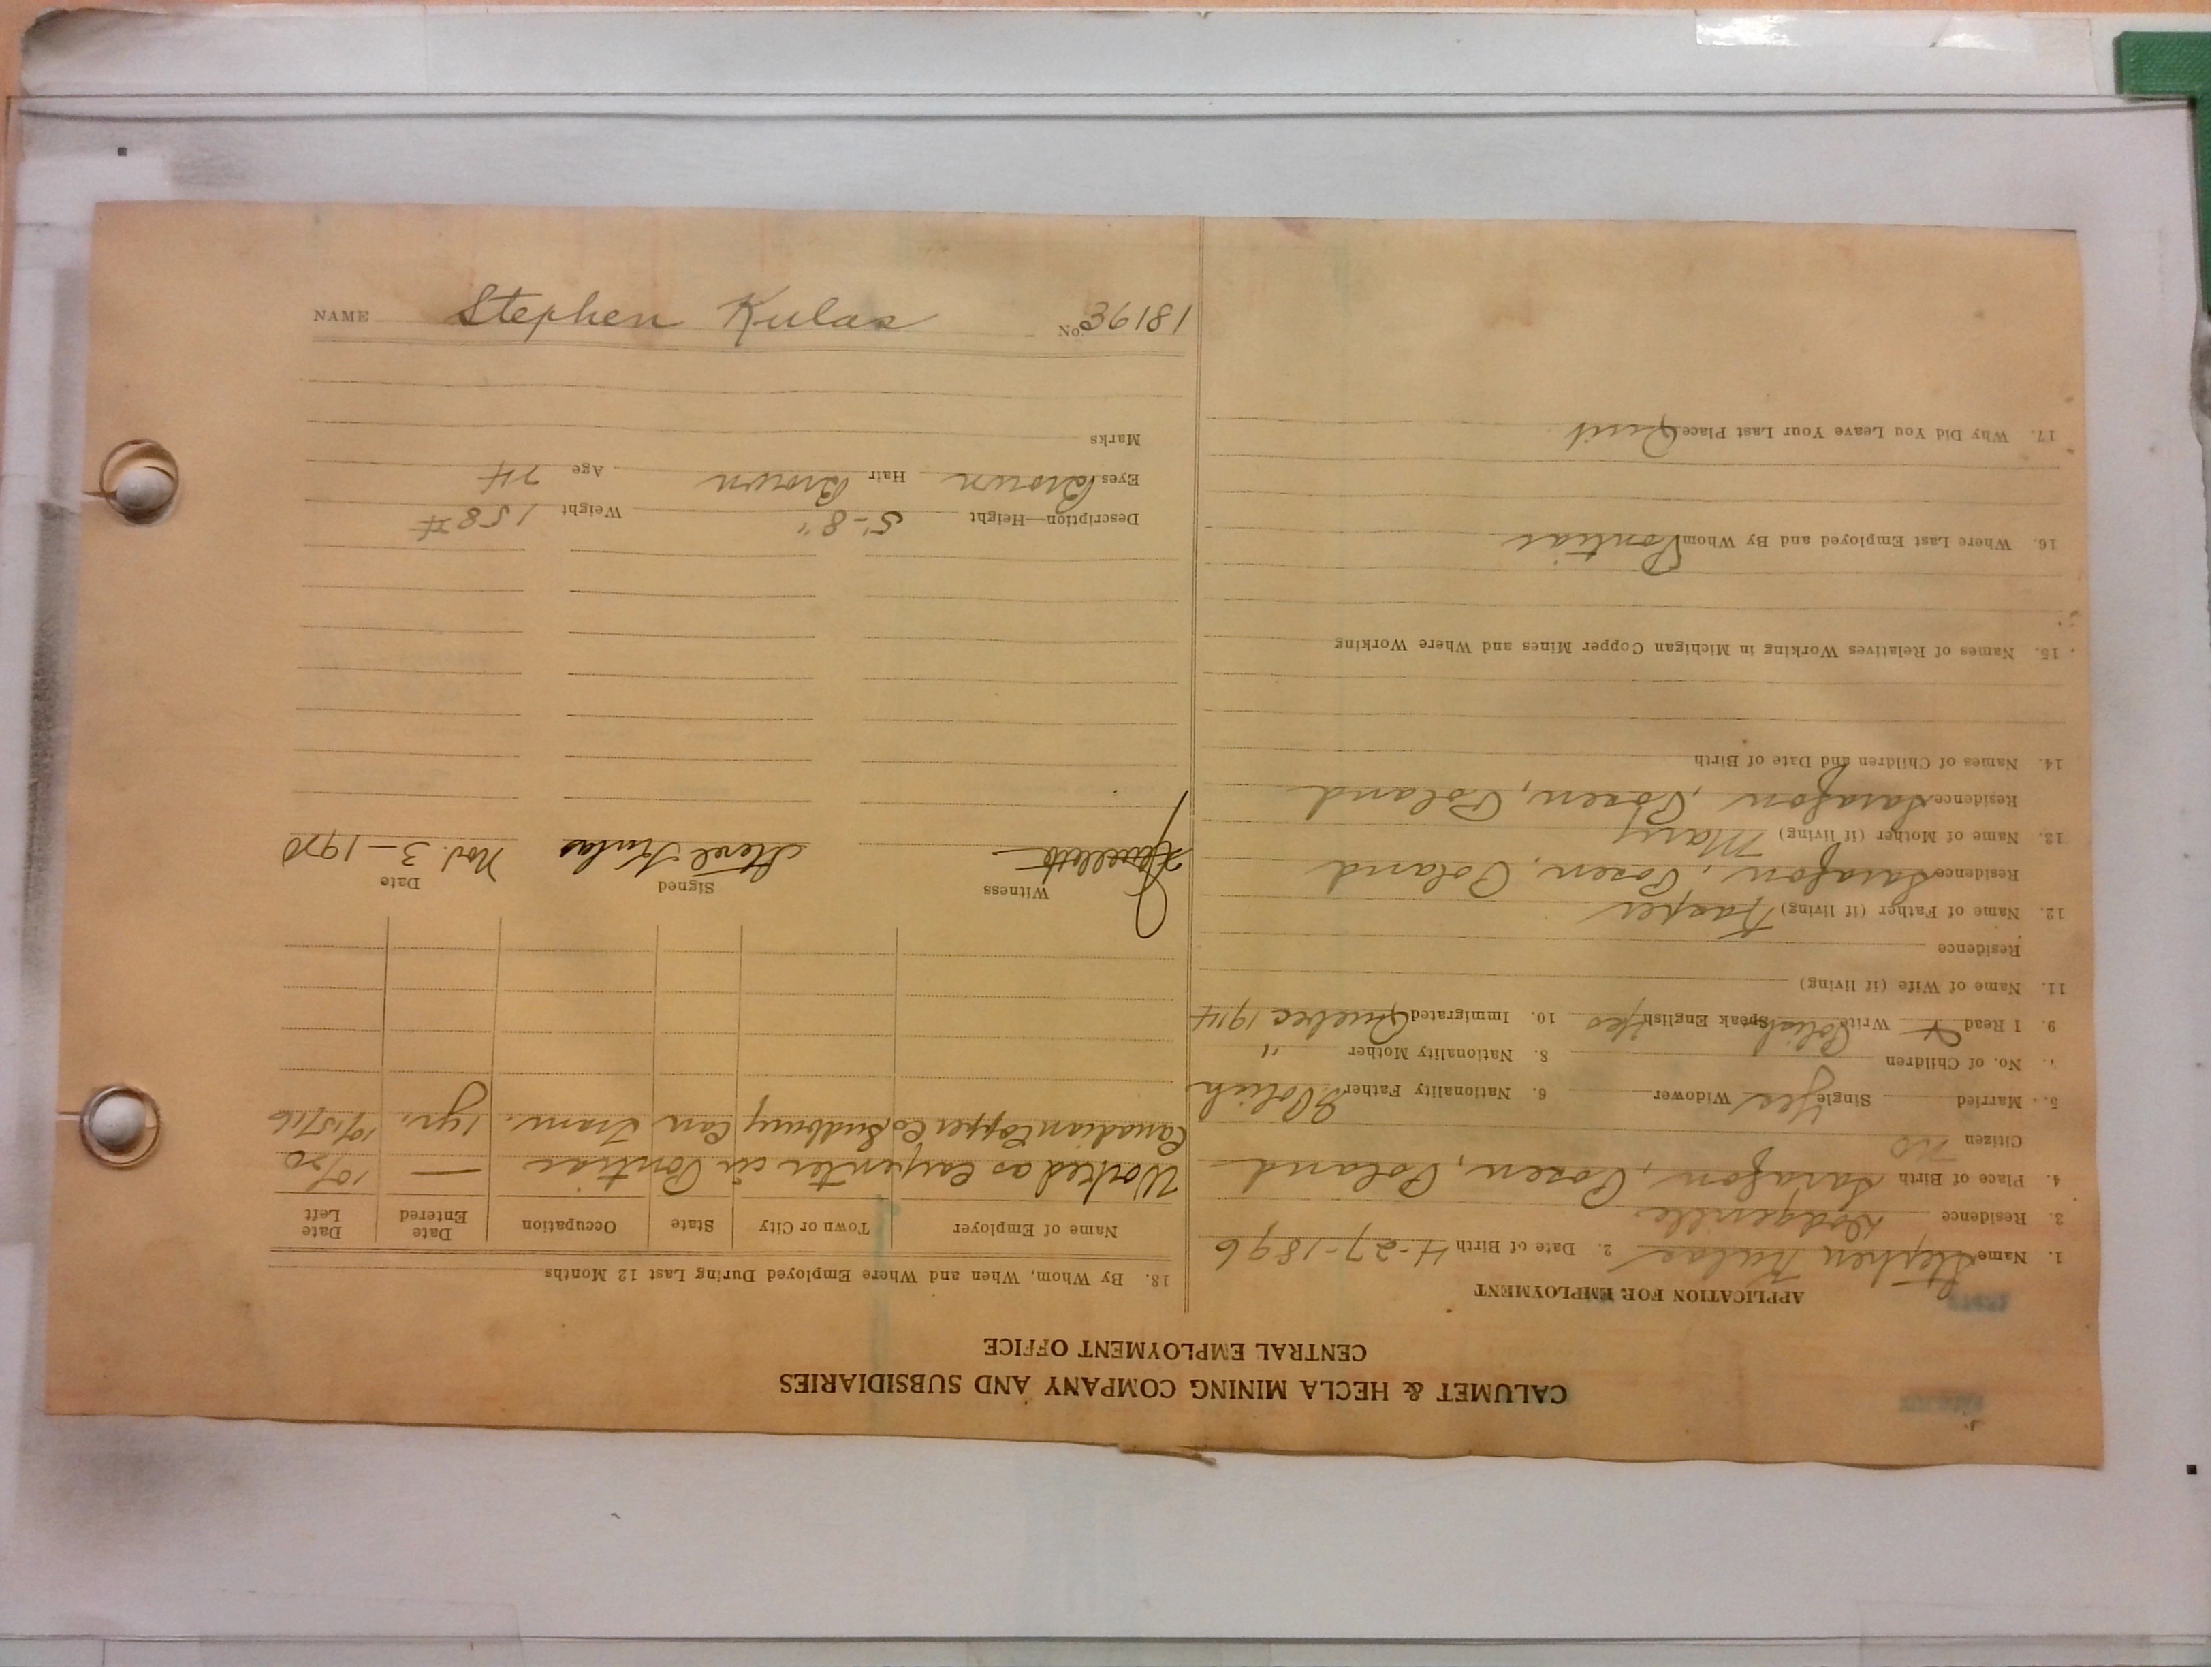 CALUMET & HECLA MINING COMPANY AND SUBSIDIARIES
CENTRAL EMPLOYMENT OFFICE
APPLICATION FOR EMPLOYMENT
1. Name Stephen Kulas 2. Date of Birth 4-27-1896
3. Residence Dodgeville
4. Place of Birth Sarafon, Posen, Poland
Citizen No
5. Married Single Yes Widower 6. Nationality Father Polish
7. No. of Children 8. Nationality Mother "
9. I Read & Write Polish Speak English Yes 10. Immigrated Quebec 1914
11. Name of Wife (if living)
Residence
12. Name of Father (if living) Kasper
Residence Sarafon, Posen, Poland
13. Name of Mother (if living) Mary
Residence Sarafon, Posen, Poland
14. Names of Children and Date of Birth
15. Names of Relatives Working in Michigan Copper Mines and Where Working
16. Where Last Employed and By Whom Pontiac
17. Why Did You Leave Your Last Place Quit
18. By Whom, When and Where Employed During Last 12 Months
Name of Employer Town or City State Occupation Date Entered Date Left
Worked as carpenter in Pontiac — 10/20
Canadian Copper Co Sudbury Can Tram. 1 yr. 10/15/16
Witness Signed Date
Steve Kulas Nov. 3-1920
Description—Height 5'-8" Weight 158#
Eyes Brown Hair Brown Age 24
Marks
NAME Stephen Kulas No. 36181